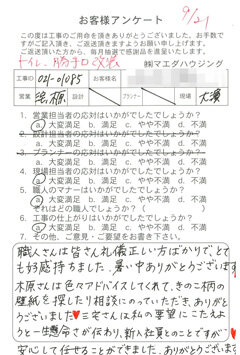 お客様アンケート
9/21
この度は工事のご用命を頂きありがとうございました。お手数で
すがご記入頂き、ご返送頂きますようお願い申し上げます。
ご返送頂いた方から、毎月抽選で感謝品を進呈いたします。
トイレ、勝手口改装
㈱マエダハウジング
工事ID
021-01085
お客様名
営業
設計
プランナー
現場
1. 営業担当者の応対はいかがでしたでしょうか?
a 大変満足 b. 満足 c. やや不満 d. 不満
2. 設計担当者の応対はいかがでしたでしょうか?
a. 大変満足 b. 満足 c. やや不満 d. 不満
3. プランナーの応対はいかがでしたでしょうか?
a. 大変満足 b. 満足 c. やや不満 d. 不満
4. 現場担当者の応対はいかがでしたでしょうか?
a 大変満足 b. 満足 c. やや不満 d. 不満
5. 職人のマナーはいかがでしたでしょうか?
a 大変満足 b. 満足 c. やや不満 d. 不満
それはどの職人でしょうか?(
6. 工事の仕上がりはいかがでしたでしょうか?
a 大変満足 b. 満足 c. やや不満 d. 不満
7. その他、ご意見・ご要望をお書き下さい。
職人さんは皆さん礼儀正しい方ばかりで、とて
も好感持ちました。暑い中ありがとうございます
木原さんは色々アドバイスしてくれて、きのこ柄の
壁紙を探したり相談にのっていただき、ありがと
うございました♥三宅さんは私の要望にこたえよ
うと一生懸命さが伝わり、新入社員とのことですが
安心して任せることができました。ありがとうございま